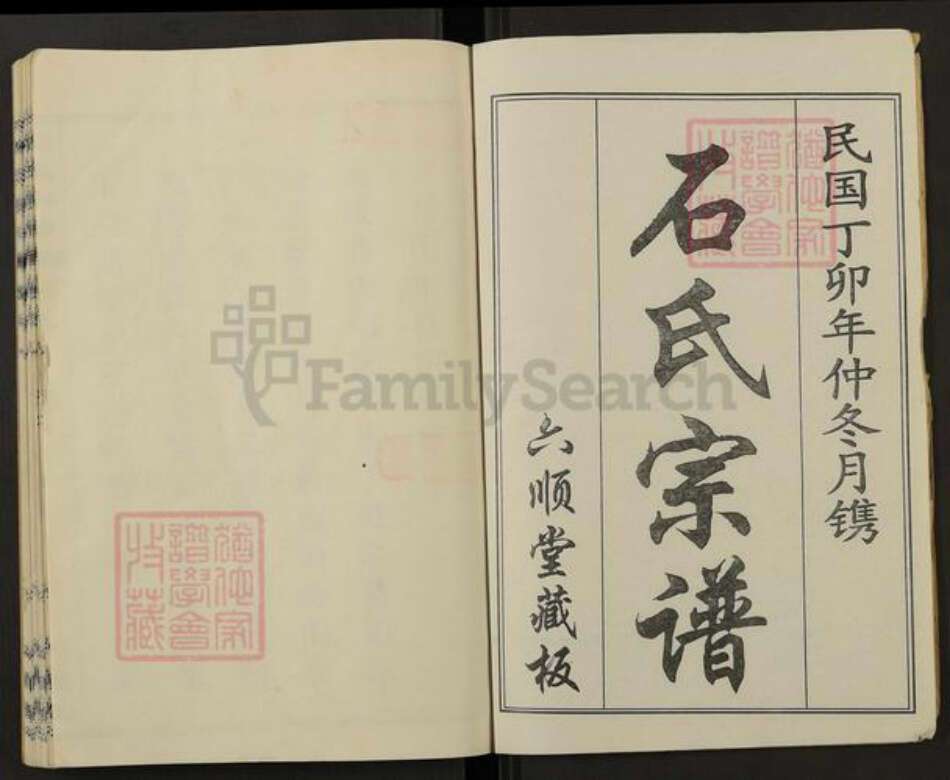 民国丁卯年仲冬月镌
石氏宗谱
六顺堂藏板
FamilySearch
猶他家
譜學會
收藏